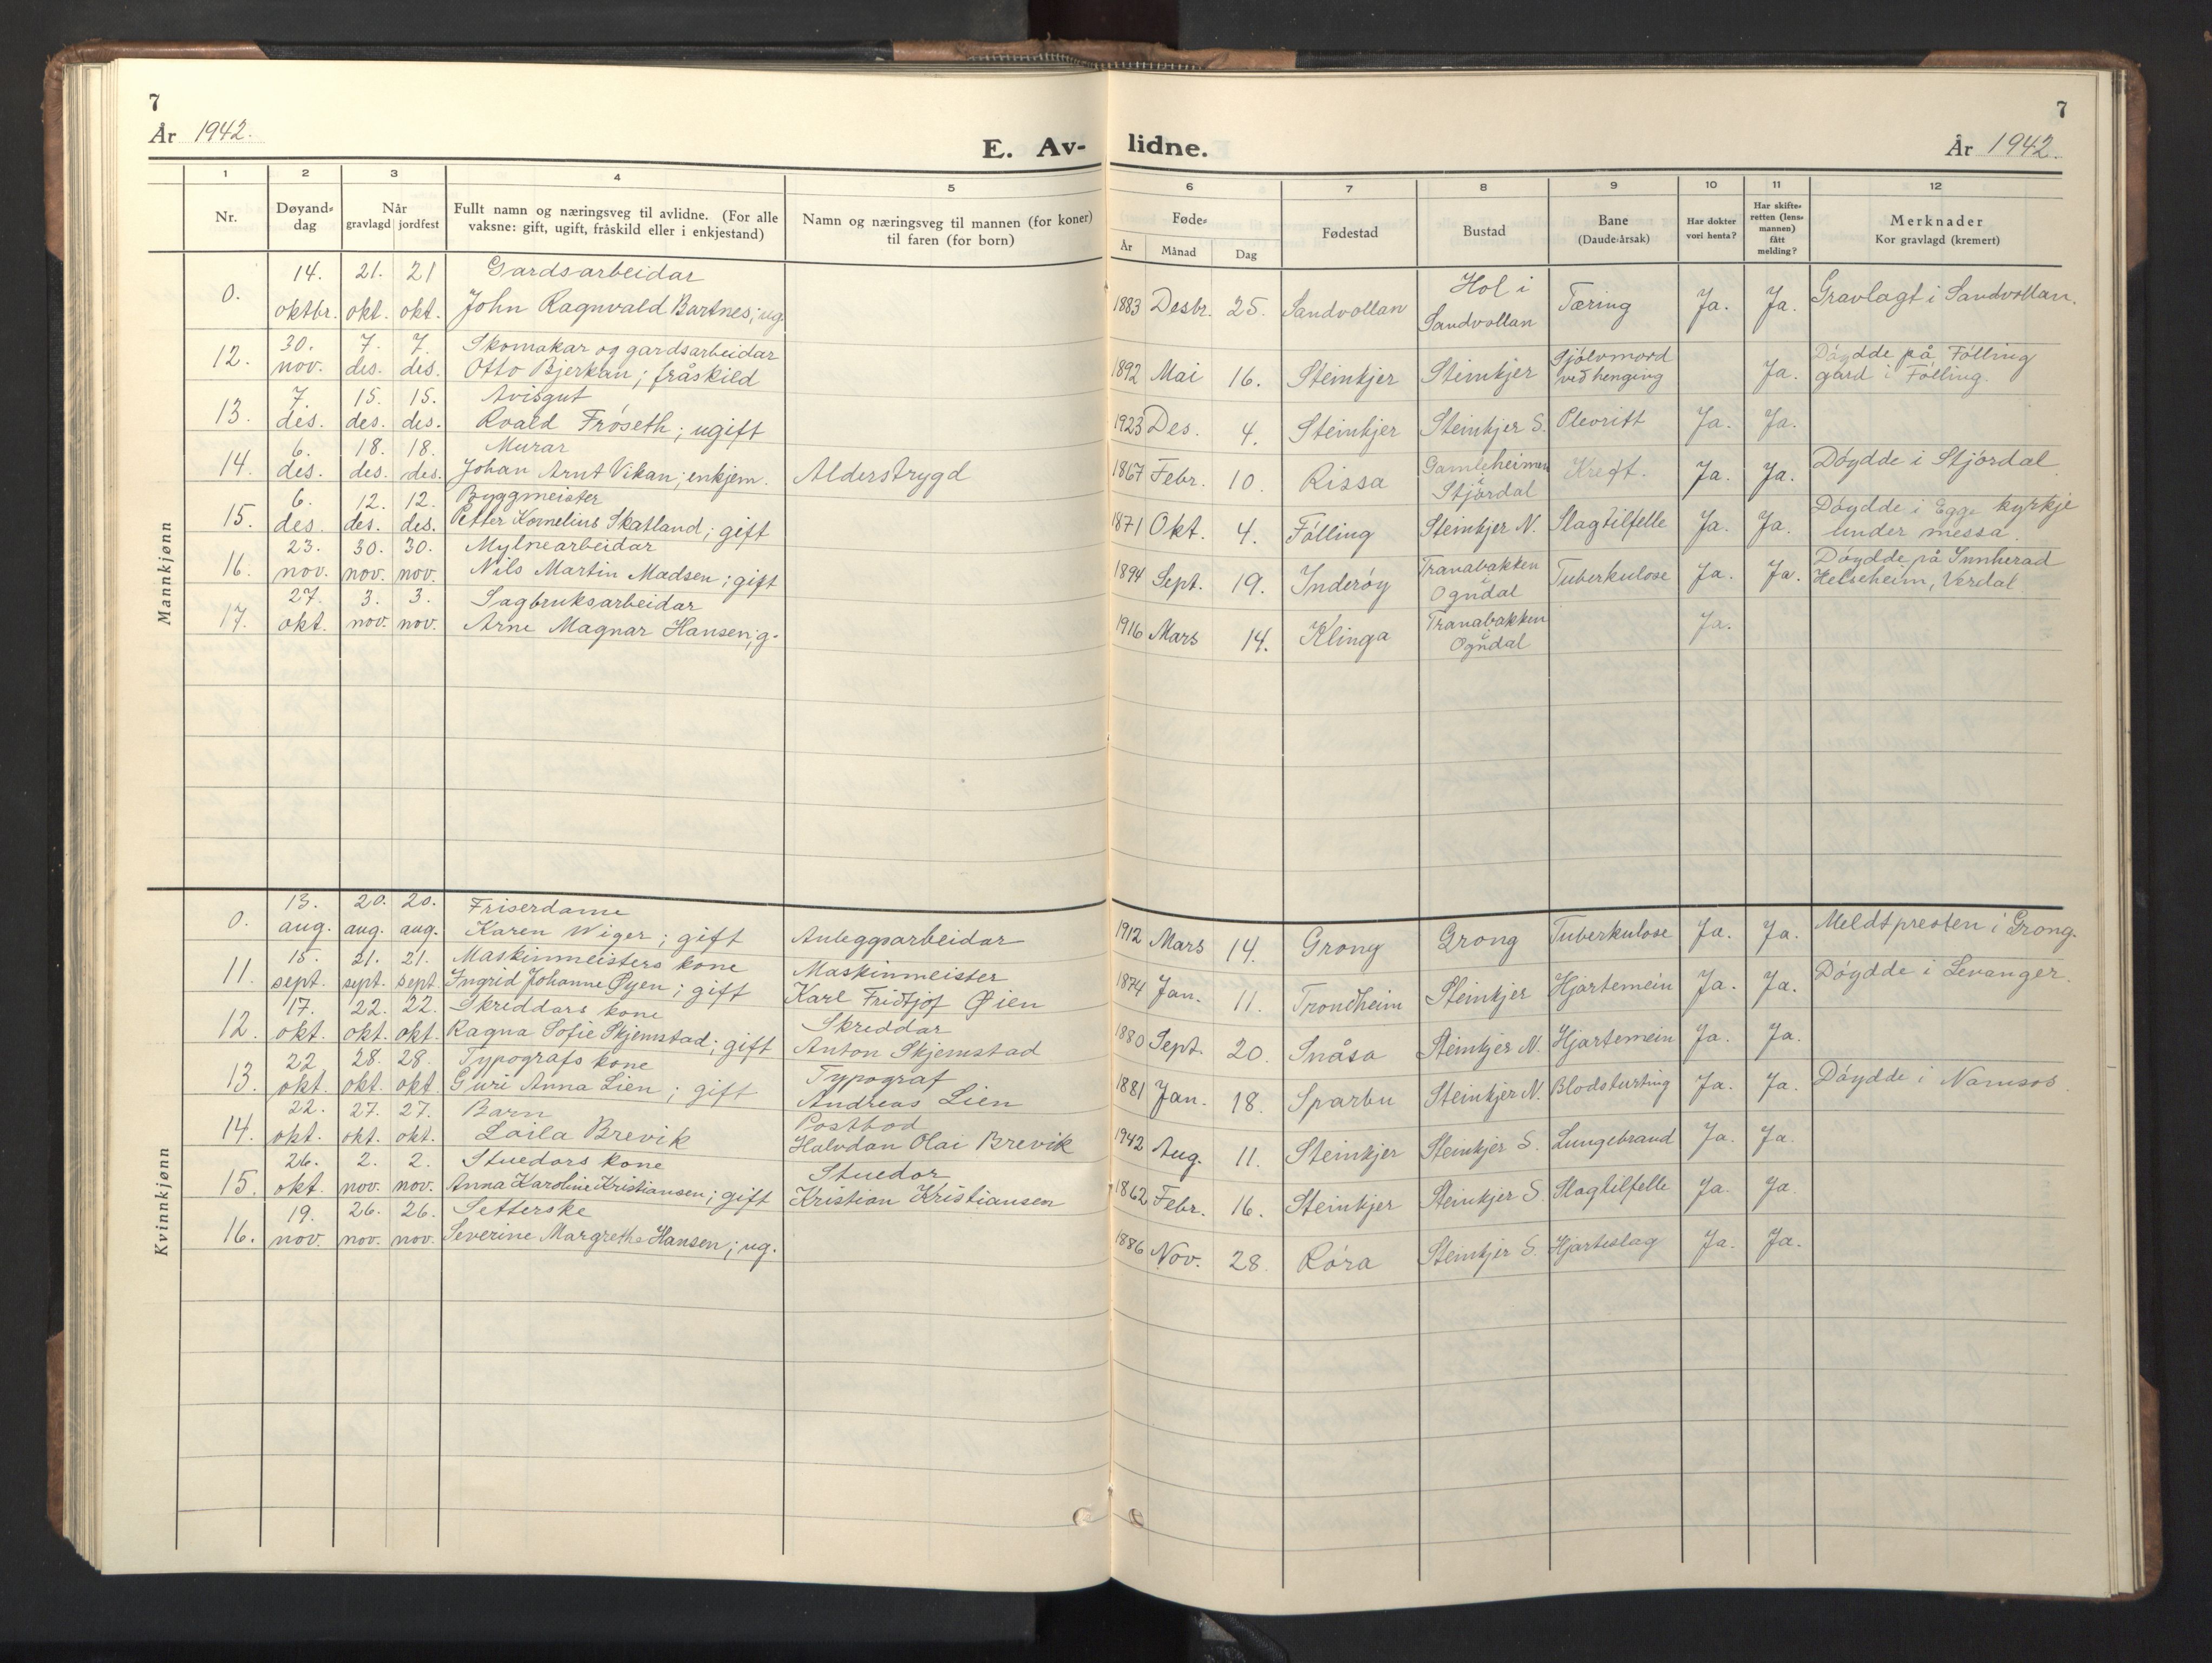 7
År 1942.
E. Av-
1
2
3
4
5
Nr.
Døyand-
dag
Når
gravlagd
jordfest
Fullt namn og næringsveg til avlidne. (For alle
vaksne: gift, ugift, fråskild eller i enkjestand)
Namn og næringsveg til mannen (for koner)
til faren (for born)
Mannkjønn
14. 21. 21 Gardsarbeidar
0. oktbr. okt. okt. John Ragnvald Bartnes; ug.
30. 7. 7. Skomakar og gardsarbeidar
12. nov. des. des. Otto Bjerkan; fråskild
7. 15. 15. Avisgut
13. des. des. des. Roald Frøseth; ugift
6. 18. 18. Murar
14. des. des. des. Johan Arnt Vikan; enkjem. Alderstrygd
6. 12. 12. Byggmeister
15. des. des. des. Petter Kornelius Skatland; gift
23. 30. 30. Mylnearbeidar
16. nov. nov. nov. Nils Martin Madsen; gift
27. 3. 3. Sagbruksarbeidar
17. okt. nov. nov. Arne Magnar Hansen; g.
Kvinnkjønn
13. 20. 20. Friserdame
0. aug. aug. aug. Karen Wiger; gift Anleggsarbeidar
15. 21. 21. Maskinmeisters kone Maskinmeister
11. sept. sept. sept. Ingrid Johanne Øyen; gift Karl Fridtjof Øien
17. 22. 22. Skreddars kone Skreddar
12. okt. okt. okt. Ragna Sofie Skjemstad; gift Anton Skjemstad
22 28. 28. Typografs kone Typograf
13. okt. okt. okt. Guri Anna Lien; gift Andreas Lien
22. 27. 27. Barn Postbod
14. okt. okt. okt. Laila Brevik Halvdan Olai Brevik
26. 2. 2. Stuedors kone Stuedor
15. okt. nov. nov. Anna Karoline Kristiansen; gift Kristian Kristiansen
19. 26. 26. Setterske
16. nov. nov. nov. Severine Margrethe Hansen; ug.
7
lidne.
År 1942.
6
7
8
9
10
11
12
Føde-
År
Månad
Dag
Fødestad
Bustad
Bane
(Daude-årsak)
Har dokter
vori henta?
Har skifte-
retten (lens-
mannen)
fått
melding?
Merknader
Kor gravlagd (kremert)
Hol i
1883 Desbr. 25. Sandvollan Sandvollan Tæring Ja. Ja. Gravlagt i Sandvollan.
Sjølvmord Døydde på Følling
1892 Mai 16. Steinkjer Steinkjer ved henging Ja. gard i Følling.
1923 Des. 4. Steinkjer Steinkjer S. Plevritt Ja. Ja.
Gamleheimen
i
1867 Febr. 10. Rissa Stjørdal Kreft. Ja. Ja. Døydde i Stjørdal
Døydde i Egge kyrkje
1871 Okt. 4. Følling Steinkjer N. Slagtilfelle Ja. Ja. under messa.
Tranabakken Døydde på Innherad
i
1894 Sept. 19. Inderøy Ogndal Tuberkulose Ja. Ja. Helseheim, Verdal
Tranabakken
i
1916 Mars 14. Klinga Ogndal Ja.
1912 Mars 14. Grong Grong Tuberkulose Ja. Ja. Meldt presten i Grong.
1874 Jan. 11. Trondheim Steinkjer Hjartemein Ja. Ja. Døydde i Levanger.
1880 Sept. 20. Snåsa Steinkjer N. Hjartemein Ja. Ja.
1881 Jan. 18. Sparbu Steinkjer N. Blodsturting Ja. Ja. Døydde i Namsos
1942 Aug. 11. Steinkjer Steinkjer S. Lungebrand Ja. Ja.
1862 Febr. 16. Steinkjer Steinkjer S. Slagtilfelle Ja. Ja.
1886 Nov. 28. Røra Steinkjer S. Hjarteslag Ja. Ja.